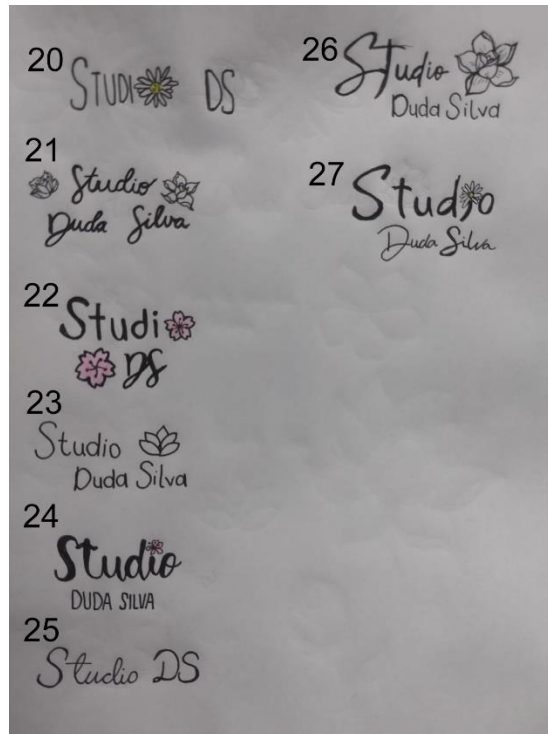 20
STUDI DS
21
Studio
Duda Silva
22
Studi
DS
23
Studio
Duda Silva
24
Studio
DUDA SILVA
25
Studio DS
26
Studio
Duda Silva
27
Studio
Duda Silva